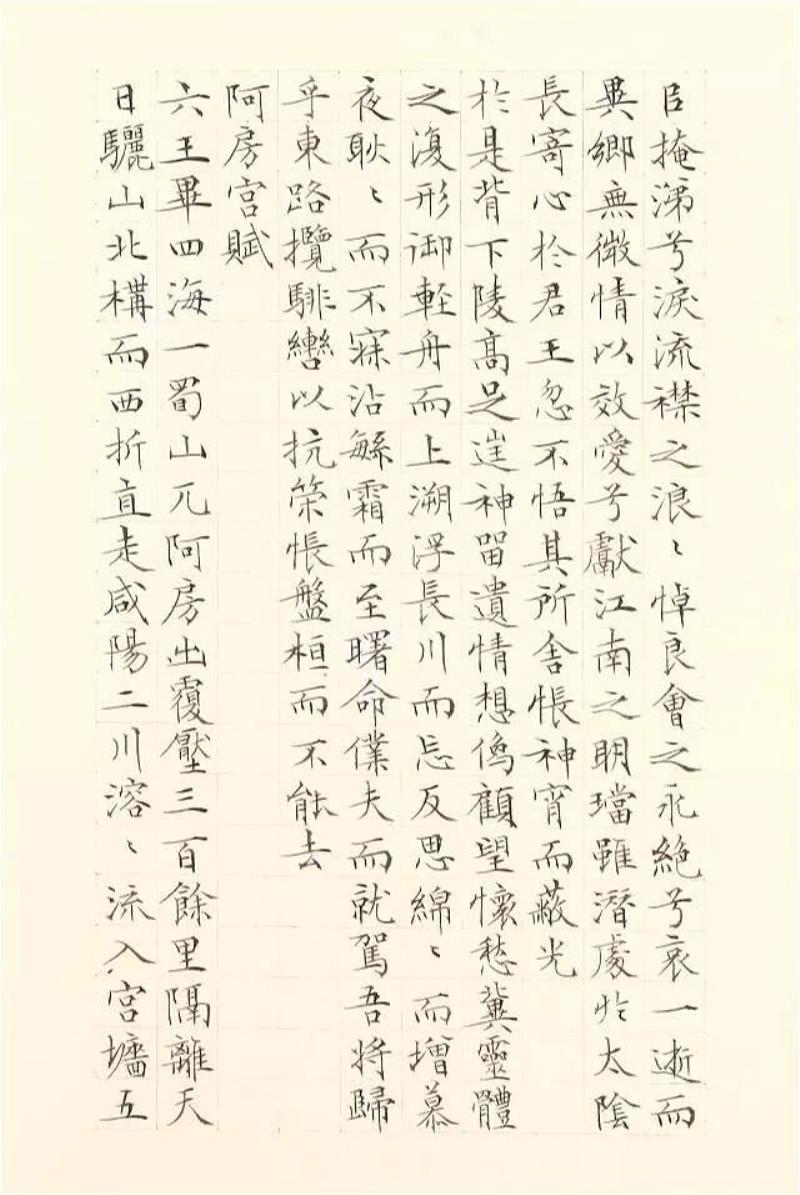 臣掩涕兮淚流襟之浪〻悼良會之永絕兮哀一逝而
異鄉無微情以效愛兮獻江南之明璫雖潛處於太陰
長寄心於君王忽不悟其所舍悵神宵而蔽光
於是背下陵高足逞神留遺情想像顧望懷愁冀靈體
之復形御輕舟而上溯浮長川而忘反思綿〻而增慕
夜耿〻而不寐沾繁霜而至曙命僕夫而就駕吾將歸
乎東路攬騑轡以抗策悵盤桓而不能去
阿房宮賦
六王畢四海一蜀山兀阿房出覆壓三百餘里隔離天
日驪山北構而西折直走咸陽二川溶〻流入宮墻五